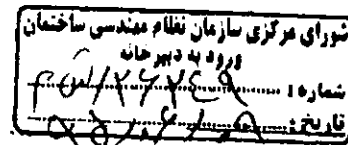 شورای مرکزی سازمان نظام مهندسی ساختمان
ورود به دبیرخانه
شماره: ۲۶۲۴۹/ش م
تاریخ: